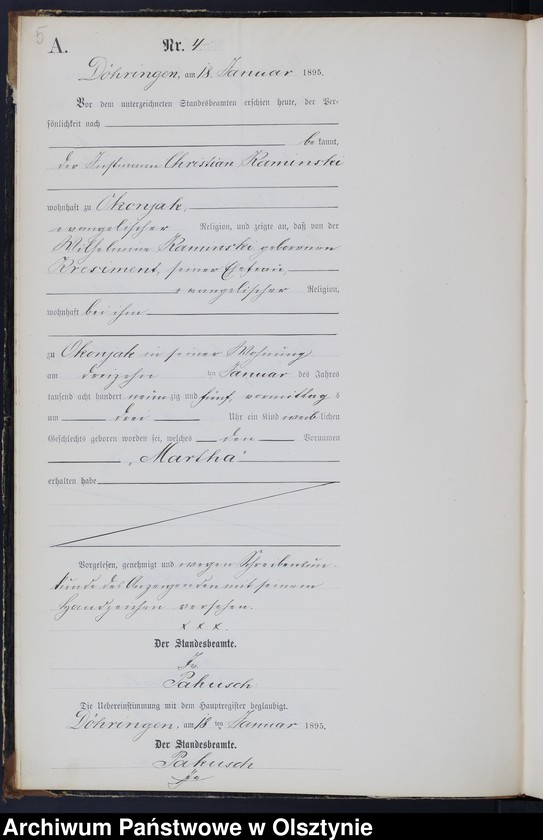 5
A. Nr. 4
Döhringen, am 18. Januar 1895.
Vor dem unterzeichneten Standesbeamten erschien heute, der Per-
sönlichkeit nach
bekannt,
der Instmann Christian Kaminski
wohnhaft zu Okonjak,
evangelischer Religion, und zeigte an, daß von der
Wilhelmine Kaminski geborenen
Krosiment, seiner Ehefrau,
evangelischer Religion,
wohnhaft bei ihm
zu Okonjak in seiner Wohnung
am dreizehn ten Januar des Jahres
tausend acht hundert neunzig und fünf, vormittag s
um drei Uhr ein Kind weiblichen
Geschlechts geboren worden sei, welches den Vornamen
„Martha“
erhalten habe
Vorgelesen, genehmigt und wegen Schreibensun-
kunde des Anzeigenden mit seinem
Handzeichen versehen.
x x x.
Der Standesbeamte.
Pakusch
Die Uebereinstimmung mit dem Hauptregister beglaubigt.
Döhringen, am 18 ten Januar 1895.
Der Standesbeamte.
Pakusch
Archiwum Państwowe w Olsztynie